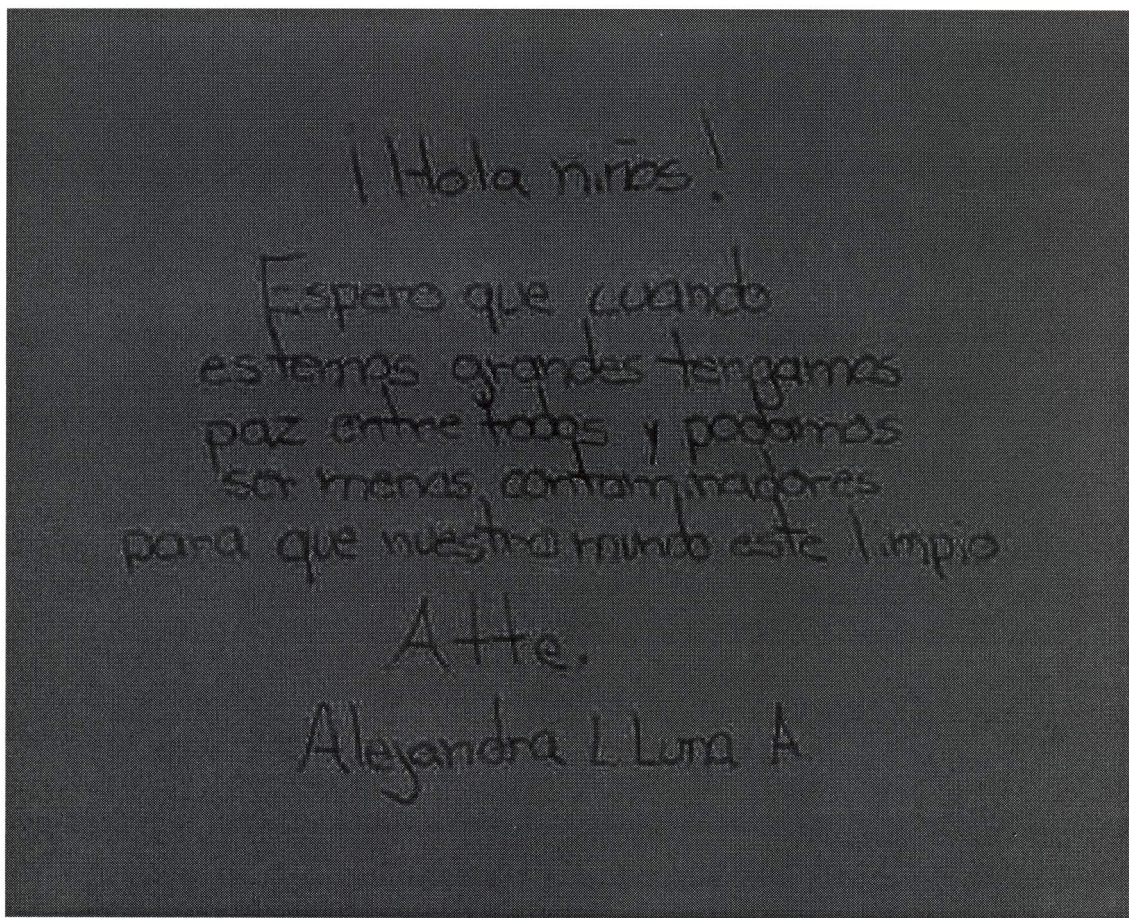 ¡Hola niños!
Espero que cuando
estemos grandes tengamos
paz entre todos y podamos
ser menos contaminadores
para que nuestro mundo este limpio
Atte.
Alejandra LLuna A